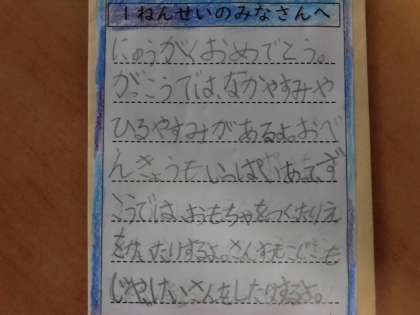 1ねんせいのみなさんへ
にゅうがくおめでとう。
がっこうでは、なかやすみや
ひるやすみがあるよ。おべ
んきょうも いっぱい ず
こうでは、おもちゃをつくたりえ
をかいたりするよ。さんすう も
じゃ さんをしたりするよ。